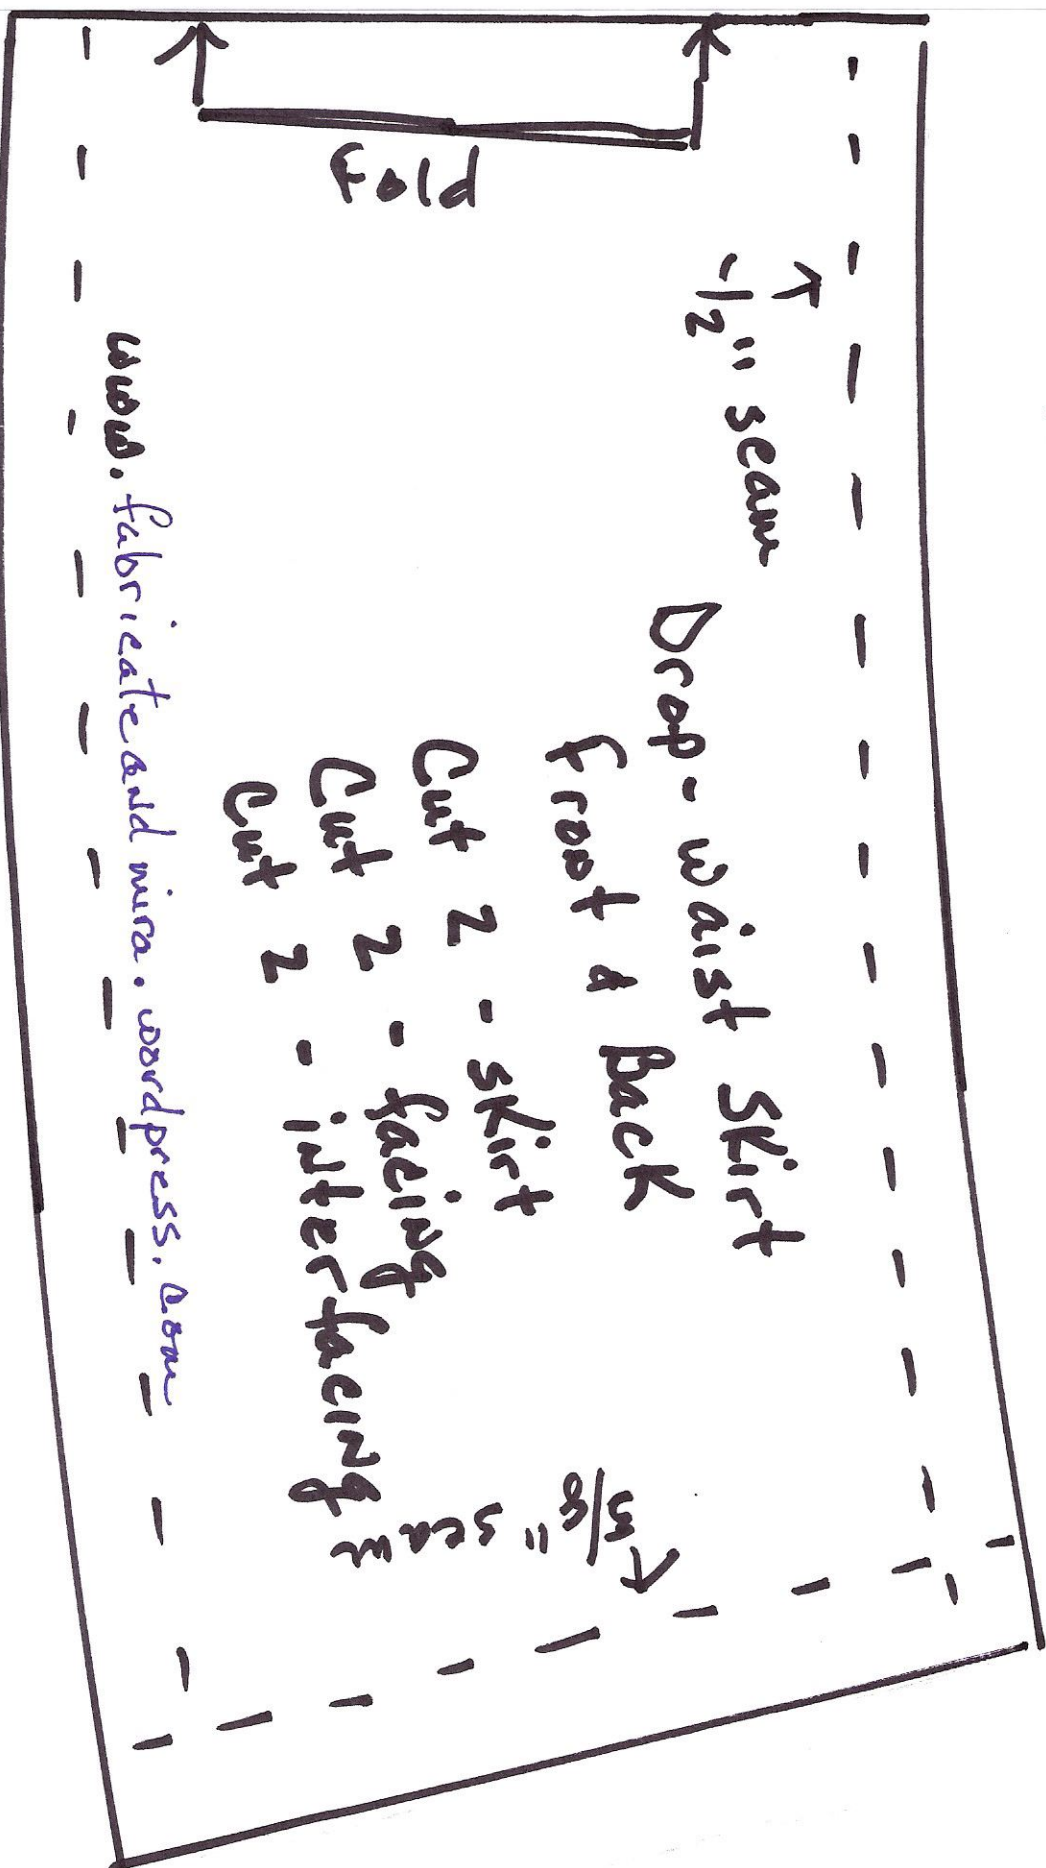 Fold
1/2" seam
Drop-waist Skirt
Front & Back
Cut 2 - skirt
Cut 2 - facing
Cut 2 - interfacing
5/8" seam
www.fabricateandmira.wordpress.com